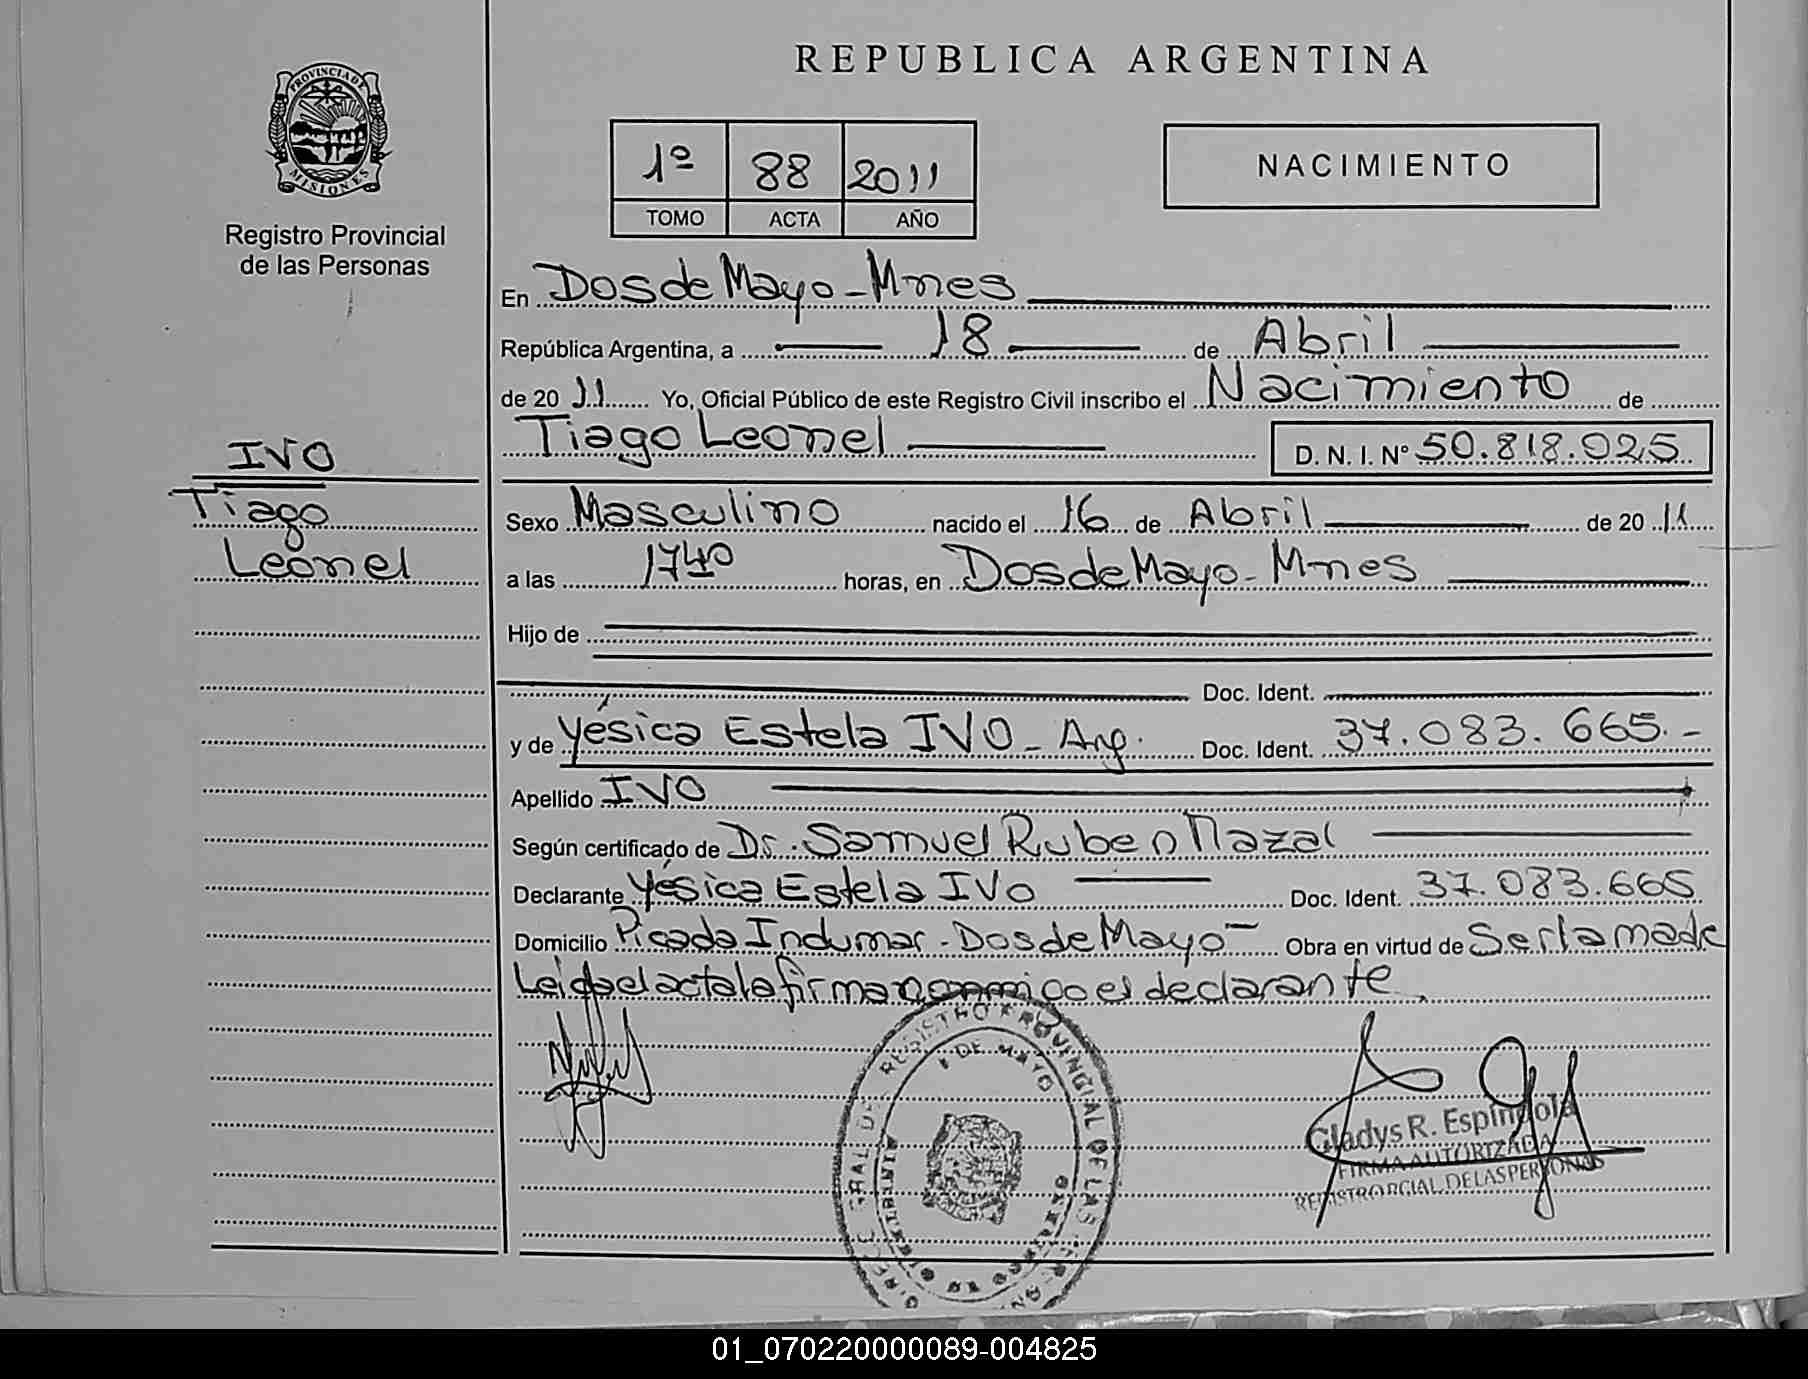 REPUBLICA ARGENTINA
PROVINCIA DE
MISIONES
Registro Provincial
de las Personas
1º 88 2011
TOMO ACTA AÑO
NACIMIENTO
En Dos de Mayo - Mnes
República Argentina, a 18 de Abril
de 20 11 Yo, Oficial Público de este Registro Civil inscribo el Nacimiento de
Tiago Leonel D. N. I. Nº 50.818.025
IVO
Tiago
Leonel
Sexo Masculino nacido el 16 de Abril de 20 11
a las 17 40 horas, en Dos de Mayo - Mnes
Hijo de
Doc. Ident.
y de Yésica Estela IVO - Arg. Doc. Ident. 37.083.665.-
Apellido IVO
Según certificado de Dr. Samuel Ruben Nazal
Declarante Yésica Estela IVO Doc. Ident. 37.083.665
Domicilio Picada Indumar - Dos de Mayo - Obra en virtud de Ser la madre
Leída el acta la firma conmigo el declarante.
REGISTRO PROVINCIAL DE LAS
DE MAYO
Gladys R. Espíndola
FIRMA AUTORIZADA
REGISTRO PCIAL. DE LAS PERSONAS
01_070220000089-004825